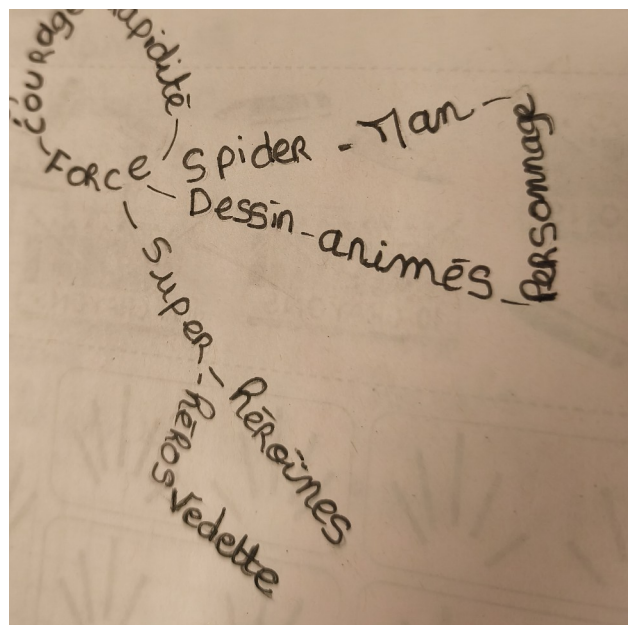 courage
rapidité
Force
Spider - Man
Personnage
Dessin - animés
Super - héroïnes
- héros
Vedette